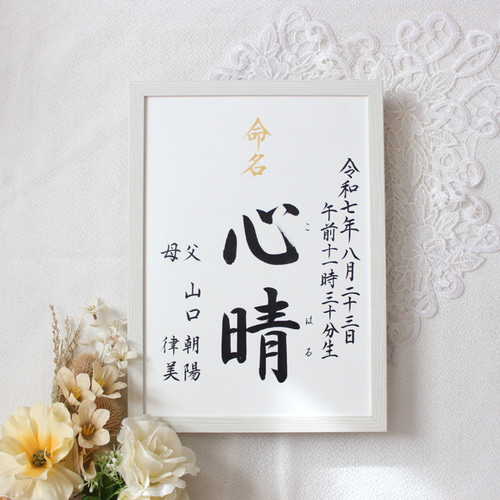 命名
令和七年八月二十三日
午前十一時三十分生
こ
はる
心晴
父 山口 朝陽
母 律美